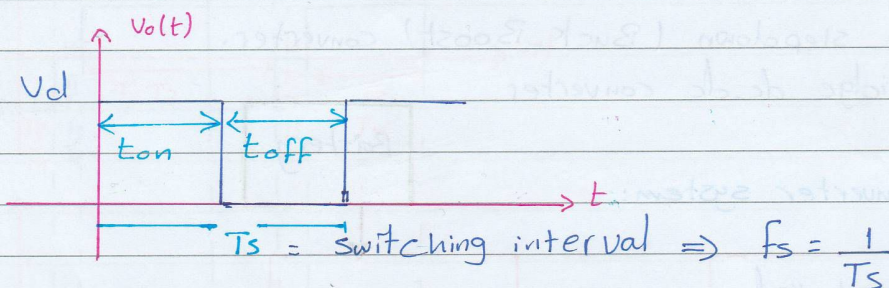 Vo(t)
Vd
ton toff
t
Ts = switching interval ⇒ fs = 1/Ts